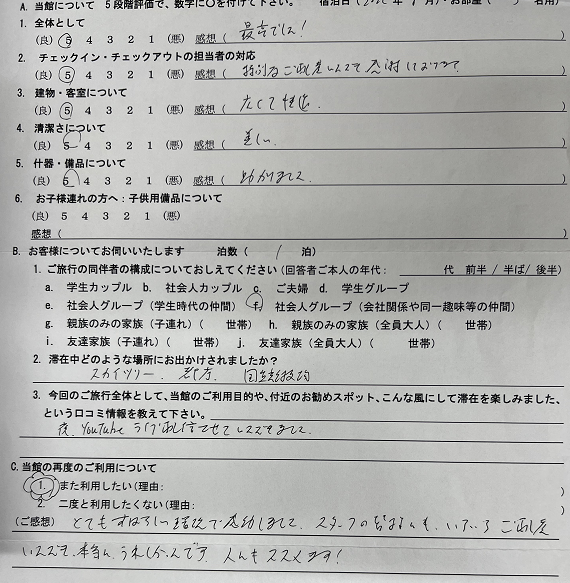 A. 当館について 5段階評価で、数字に○を付けて下さい。 宿泊日 名用)
1. 全体として
(良) 5 4 3 2 1 (悪) 感想 ( 最高でした! )
2. チェックイン・チェックアウトの担当者の対応
(良) 5 4 3 2 1 (悪) 感想 ( )
3. 建物・客室について
(良) 5 4 3 2 1 (悪) 感想 ( 広くて快適. )
4. 清潔さについて
(良) 5 4 3 2 1 (悪) 感想 ( 美しい. )
5. 什器・備品について
(良) 5 4 3 2 1 (悪) 感想 ( 助かりました. )
6. お子様連れの方へ：子供用備品について
(良) 5 4 3 2 1 (悪)
感想 ( )
B. お客様についてお伺いいたします 泊数 ( 1 泊)
1. ご旅行の同伴者の構成についておしえてください(回答者ご本人の年代： 代 前半 / 半ば/ 後半)
a. 学生カップル b. 社会人カップル c. ご夫婦 d. 学生グループ
e. 社会人グループ (学生時代の仲間) f. 社会人グループ (会社関係や同一趣味等の仲間)
g. 親族のみの家族 (子連れ) ( 世帯) h. 親族のみの家族 (全員大人) ( 世帯)
i. 友達家族 (子連れ) ( 世帯) j. 友達家族 (全員大人) ( 世帯)
2. 滞在中どのような場所にお出かけされましたか？
スカイツリー.
3. 今回のご旅行全体として、当館のご利用目的や、付近のお勧めスポット、こんな風にして滞在を楽しみました、
という口コミ情報を教えて下さい。
夜、YouTube ライブ配信させて
C. 当館の再度のご利用について
1. また利用したい(理由: )
2. 二度と利用したくない(理由: )
(ご感想) とてもすばらしい施設で感動しました. スタッフの皆さんも、いろいろ ご配慮
本当に、うれしかったです. ススメます!